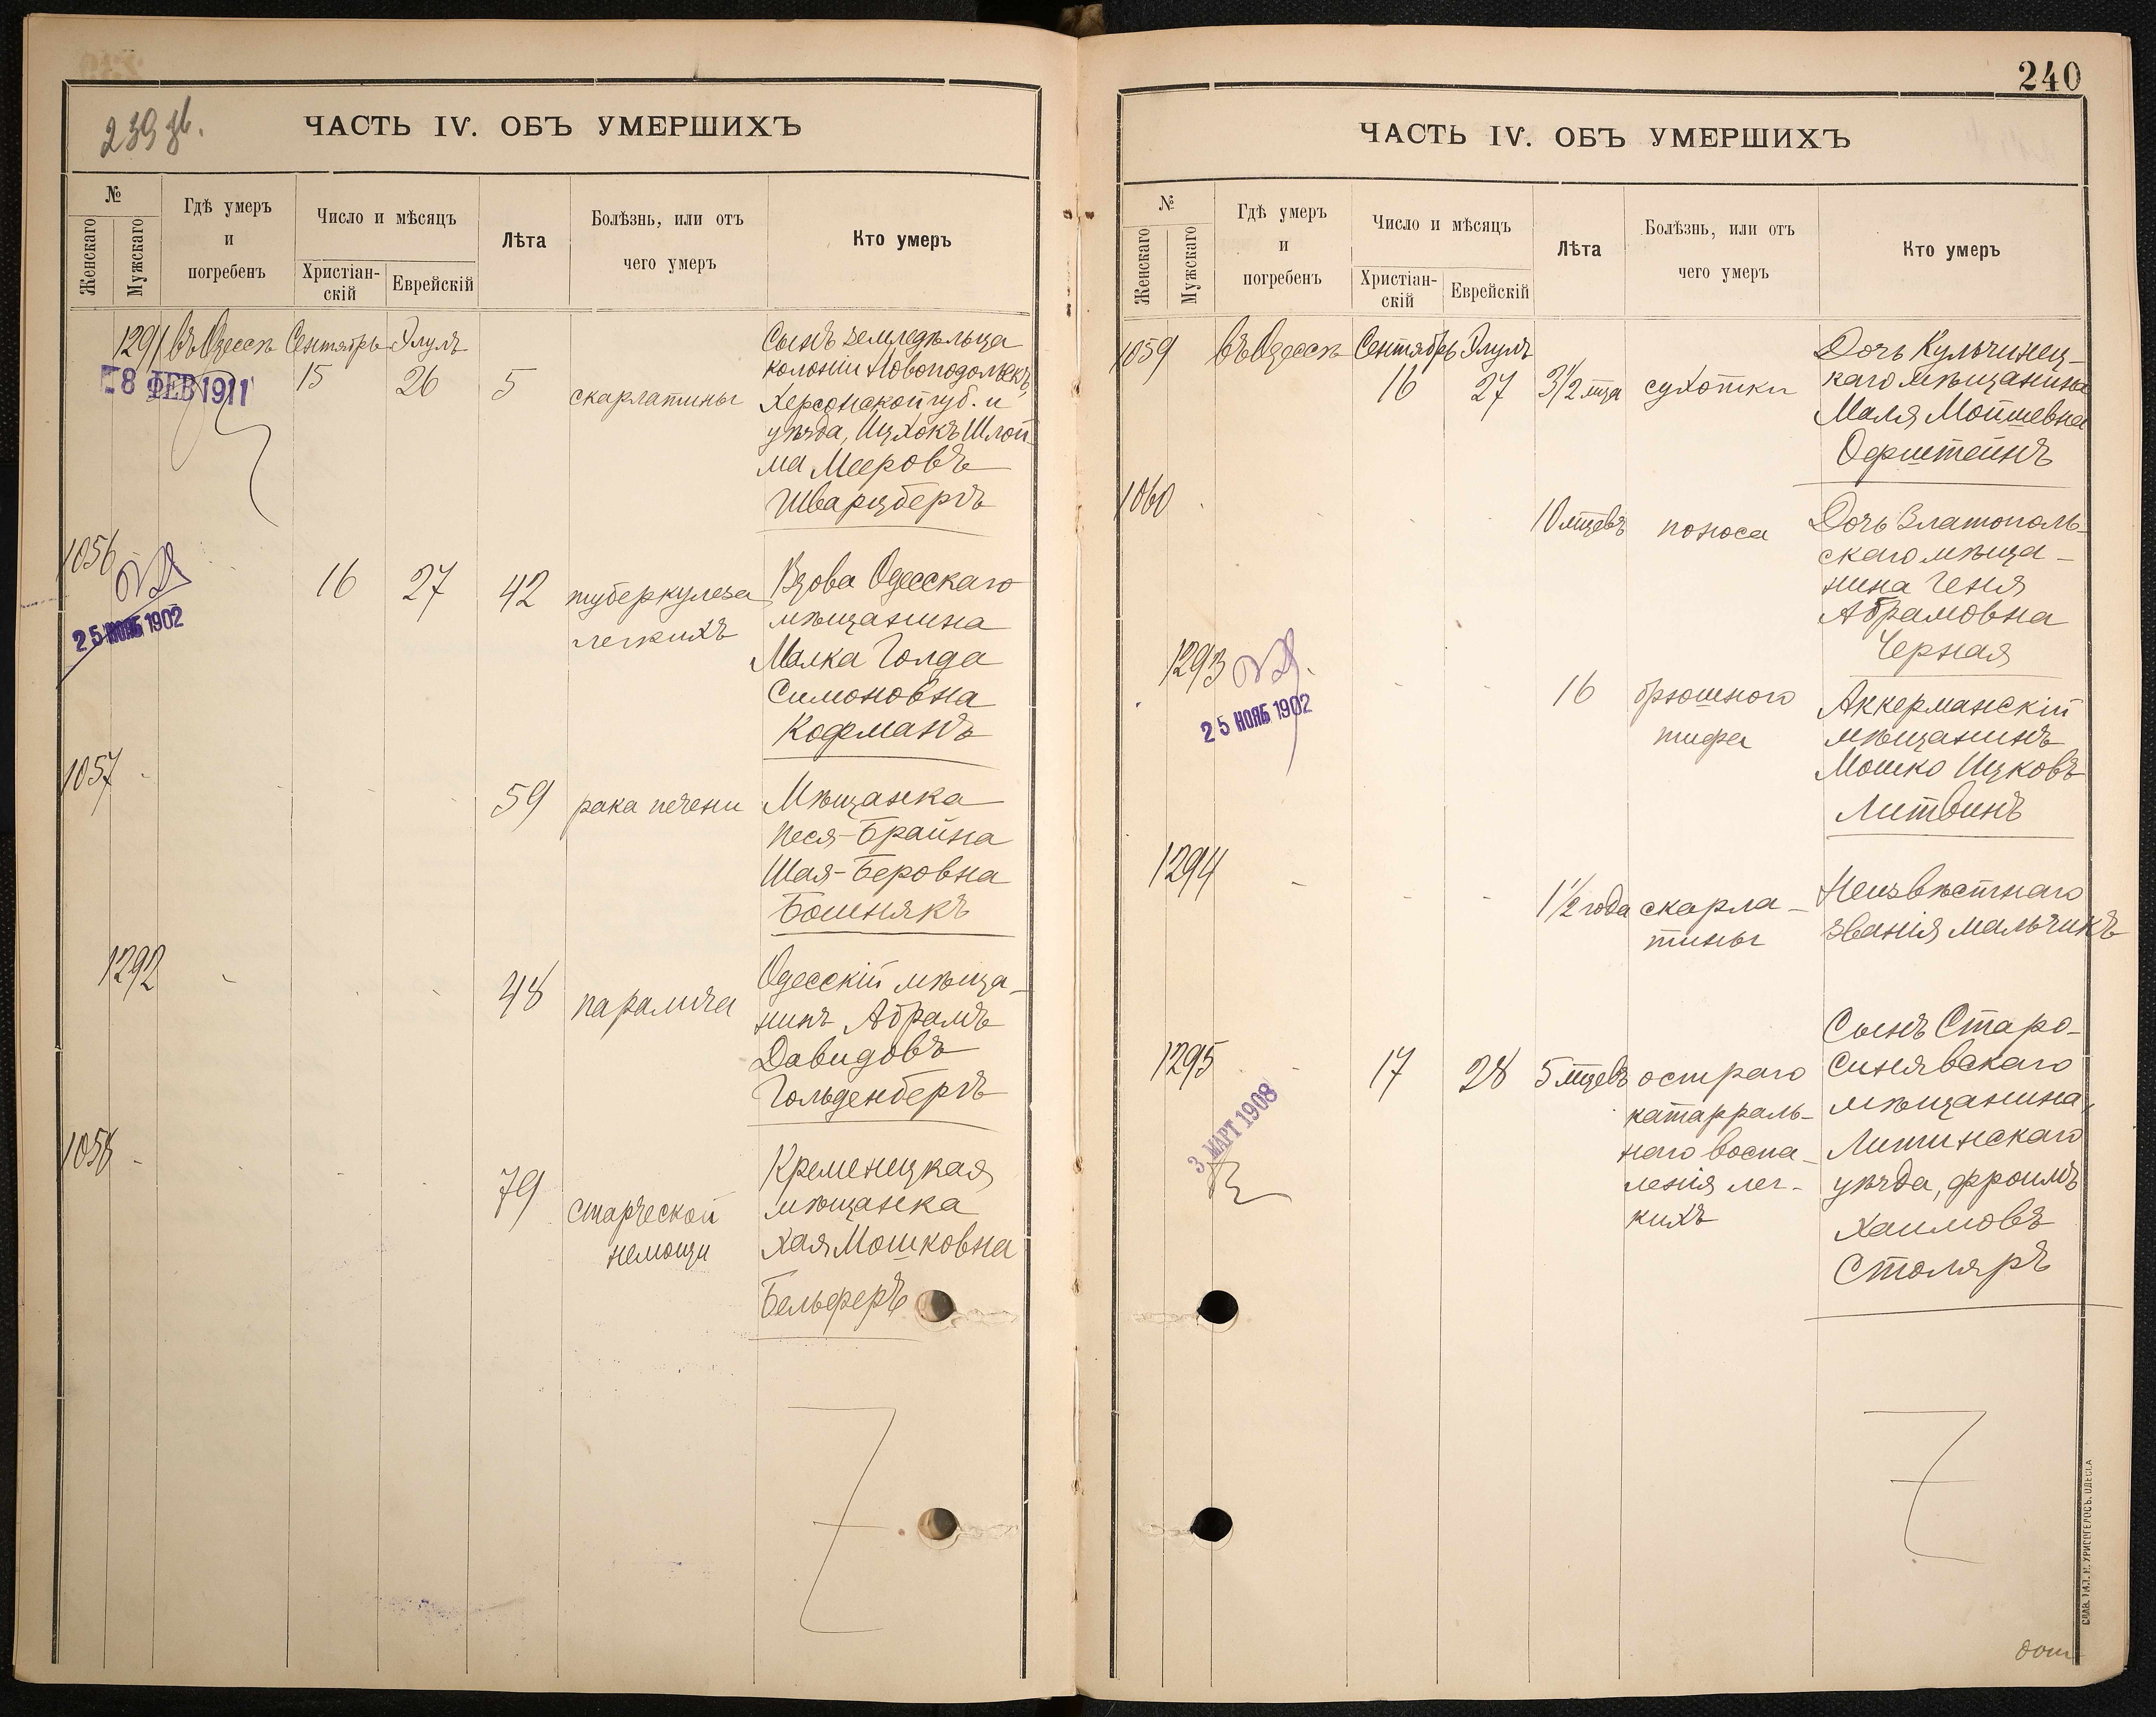 239 зв.
ЧАСТЬ IV. ОБЪ УМЕРШИХЪ
№
Женскаго
Мужскаго
Гдѣ умеръ
и
погребенъ
Число и мѣсяцъ
Христіан-
скій
Еврейскій
Лѣта
Болѣзнь, или отъ
чего умеръ
Кто умеръ
1291 въ Одессѣ Сентябрь Элулъ
15 26 5 скарлатины
Сынъ земледѣльца
колоніи Новоподольскъ,
Херсонской губ. и
уѣзда, Ицхокъ Шлой-
ма Мееровъ
Шварцбергъ
8 ФЕВ 1911
1056
16 27 42 туберкулеза
легкихъ
Вдова Одесскаго
мѣщанина
Малка Голда
Симоновна
Кофманъ
25 НОЯБ 1902
1057
59 рака печени
Мѣщанка
Песя-Брайна
Шая-Беровна
Бошнякъ
1292
48 паралича
Одесскій мѣща-
нинъ Абрамъ
Давидовъ
Гольденбергъ
1058
79 старческой
немощи
Кременецкая
мѣщанка
Хая Мошковна
Бельферъ
240
ЧАСТЬ IV. ОБЪ УМЕРШИХЪ
№
Женскаго
Мужскаго
Гдѣ умеръ
и
погребенъ
Число и мѣсяцъ
Христіан-
скій
Еврейскій
Лѣта
Болѣзнь, или отъ
чего умеръ
Кто умеръ
1059 въ Одессѣ Сентябрь Элулъ
16 27 3 1/2 мца сухотки
Дочь Кульчинец-
каго мѣщанина
Маля Мойшевна
Офштейнъ
1060
10 мцевъ поноса
Дочь Златополь-
скаго мѣща-
нина Геня
Абрамовна
Черная
1293
16 брюшного
тифа
Аккерманскій
мѣщанинъ
Мошко Ицковъ
Литвинъ
25 НОЯБ 1902
1294
1 1/2 года скарла-
тины
Неизвѣстнаго
званія мальчикъ
1295
17 28 5 мцевъ остраго
катарраль-
наго воспа-
ленія лег-
кихъ
Сынъ Старо-
Синявскаго
мѣщанина,
Литинскаго
уѣзда, Фроимъ
Хаимовъ
Столяръ
3 МАРТ 1908